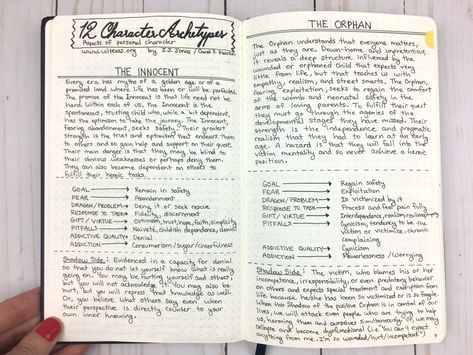 12 Character Archetypes
Aspects of personal character
by J.S. Jones / Carol S. Pearson
THE INNOCENT
Every era has myths of a golden age or of a
promised land where life has been or will be perfect.
The promise of the Innocent is that life need not be
hard. Within each of us, the Innocent is the
spontaneous, trusting child who, while a bit dependent,
has the optimism to take the journey. The Innocent,
fearing abandonment, seeks safety. Their greatest
strength is the trust and optimism that endears them
to others and so gain help and support on their quest.
Their main danger is that they may be blind to
their obvious weaknesses or perhaps deny them.
They can also become dependent on others to
fulfill their heroic tasks.
GOAL → Remain in safety
FEAR → Abandonment
DRAGON/PROBLEM → Deny it or seek rescue
RESPONSE TO TASK → Fidelity, discernment
GIFT / VIRTUE → Optimism, trust, hope, faith, simplicity
PITFALLS → Naiveté, childish dependence, denial
ADDICTIVE QUALITY → Denial
ADDICTION → Consumerism/sugar/cheerfulness
Shadow Side: Evidenced in a capacity for denial
so that you do not let yourself know what is really
going on. You may be hurting yourself and others,
but you will not acknowledge it. You may also be
hurt, but you will repress that knowledge as well.
Or, you believe what others say even when
their perspective is directly counter to your
own inner knowing.
THE ORPHAN
The Orphan understands that everyone matters,
just as they are. Down-home and unpretentious,
it reveals a deep structure influenced by the
wounded or orphaned child that expects very
little from life, but that teaches us with
empathy, realism, and street smarts. The Orphan,
fearing exploitation, seeks to regain the comfort
of the womb and neonatal safety in the
arms of loving parents. To fulfill their quest
they must go through the agonies of the
developmental stages they have missed. Their
strength is the independence and pragmatic
realism that they had to learn at an early
age. A hazard is that they will fall into the
victim mentality and so never achieve a heroic
position.
GOAL → Regain safety
FEAR → Exploitation
DRAGON/PROBLEM → Is victimized by it
RESPONSE TO TASK → Process and feel pain fully
GIFT / VIRTUE → Interdependence, realism, resilience
PITFALLS → Cynicism, tendency to be the
victim or victimize, chronic
complaining
ADDICTIVE QUALITY → Cynicism
ADDICTION → Powerlessness / Worrying
Shadow Side: The victim, who blames his or her
incompetence, irresponsibility, or even predatory behavior
on others and expects special treatment and exemption from
life because he/she has been so victimized or is so fragile.
When this Shadow of the positive Orphan is in control of our
lives, we will attack even people who are trying to help
us, harming them and ourselves simultaneously. Or, we may
collapse and become dysfunctional (i.e. "You can't expect
anything from me. I'm so wounded/hurt/incompetent.")